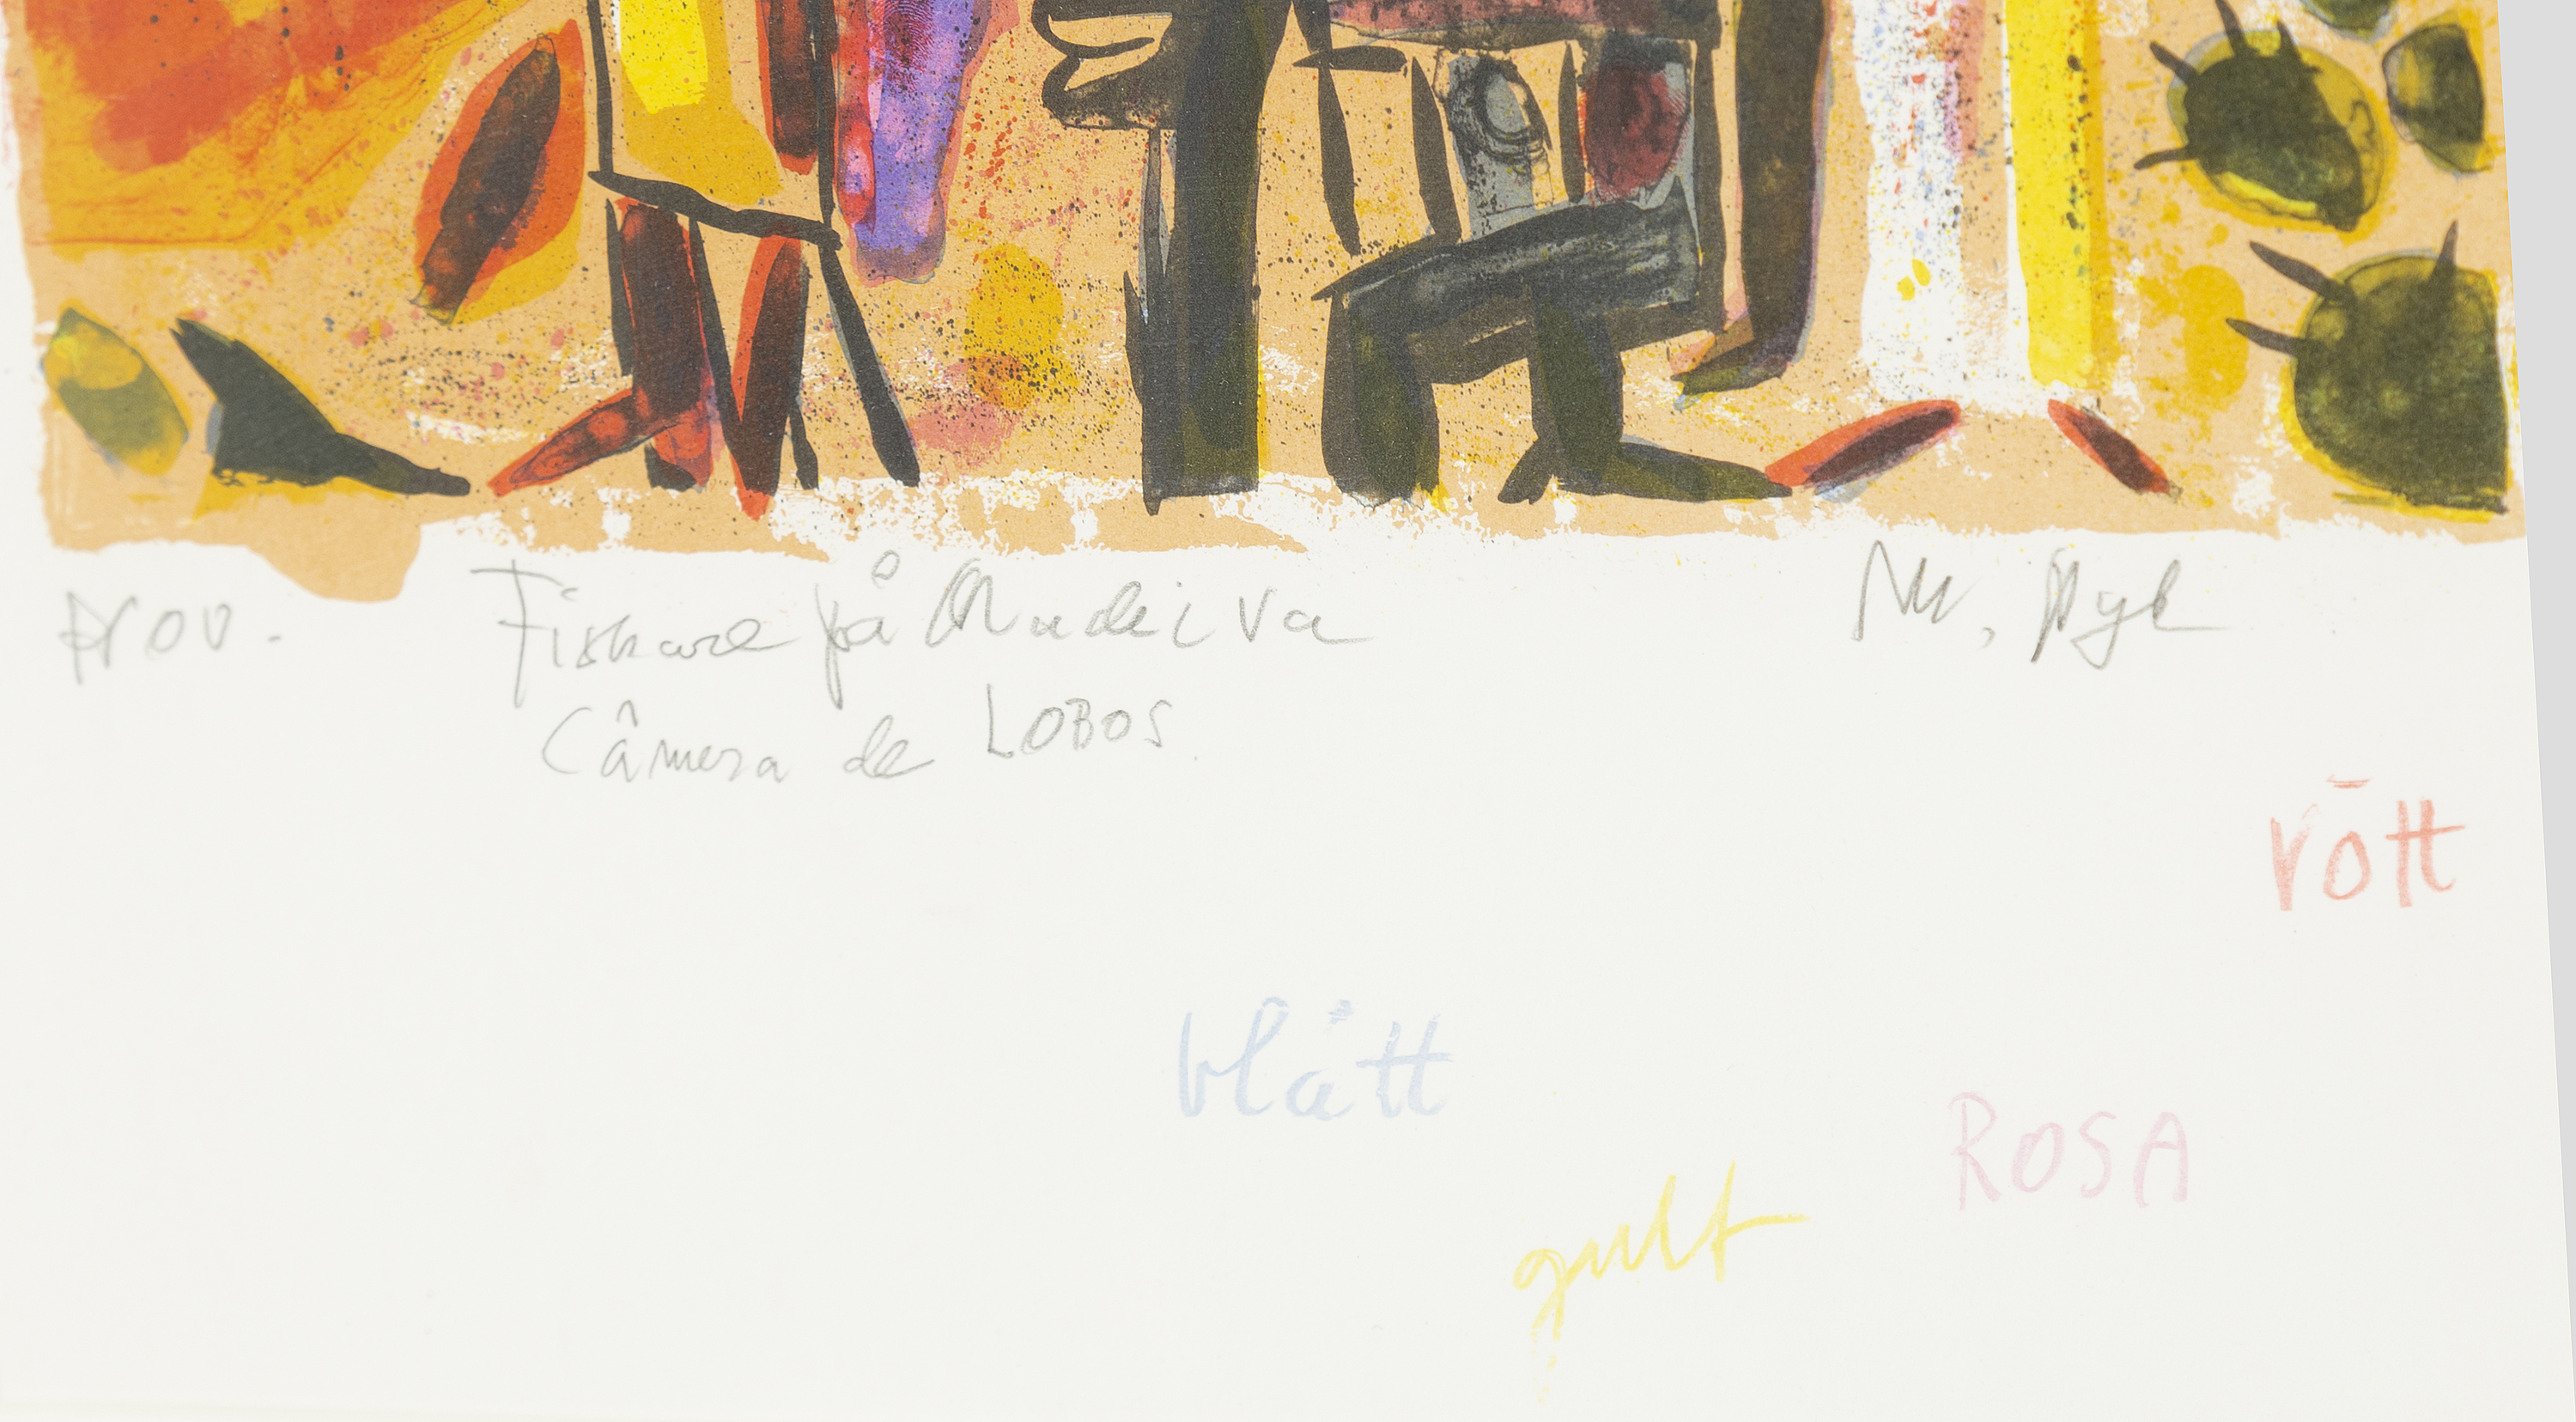 Prov.
Fiskare på Madeiva
Câmera de LOBOS.
rött
blått
ROSA
gult